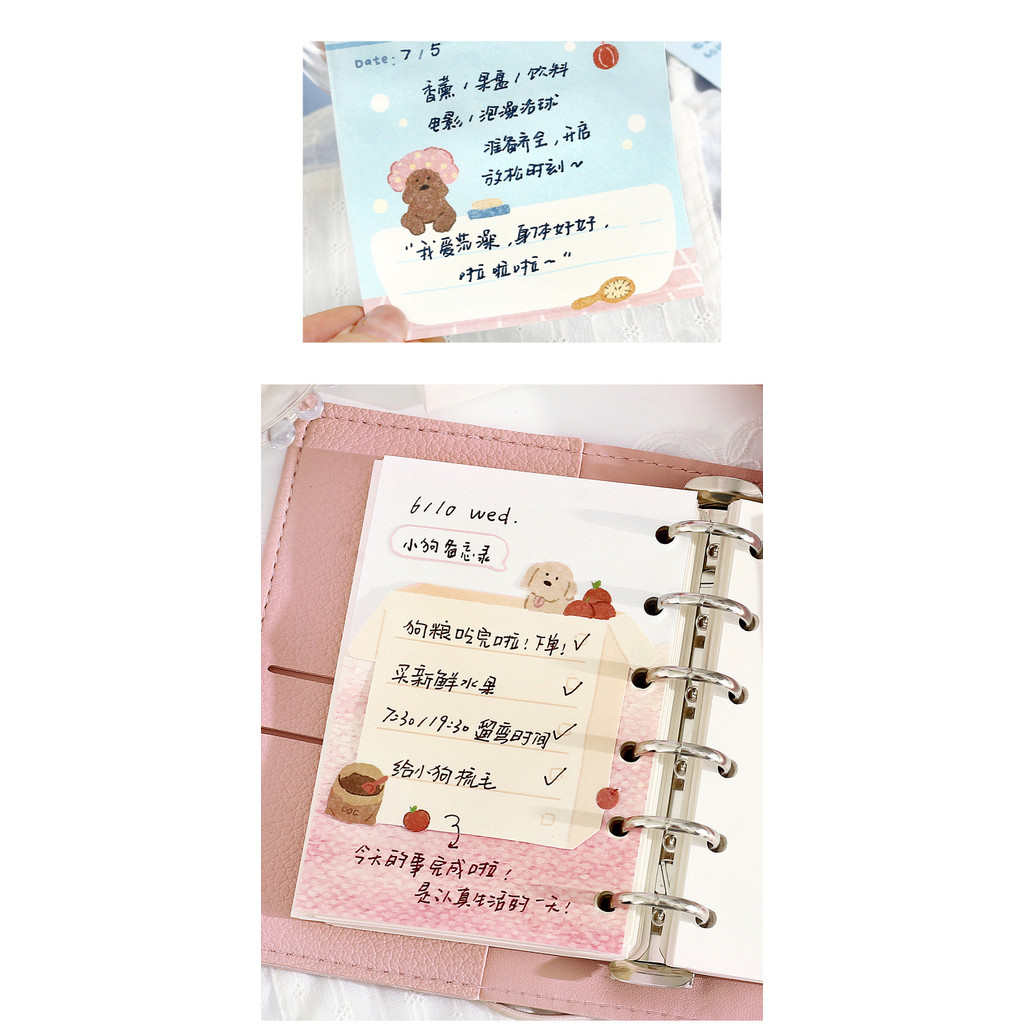 Date: 7/5
香薰/果盘/饮料
电影/泡澡浴球
准备齐全,开启
放松时刻~
"我爱洗澡,身体好好,
啦啦啦~"
6/10 wed.
小狗备忘录
狗粮吃完啦!下单!✓
买新鲜水果 ✓
7:30/19:30 遛弯时间✓
给小狗梳毛 ✓
DOG
今天的事完成啦!
是认真生活的一天!